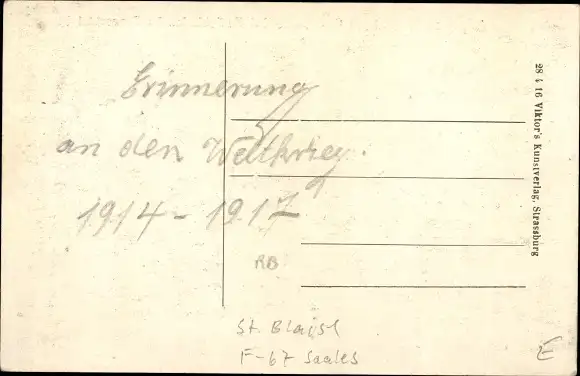 Erinnerung
an den Weltkrieg.
1914 - 1917
RB
St. Blaise
F-67 Saales
E
28 4 16 Viktor's Kunstverlag, Strassburg